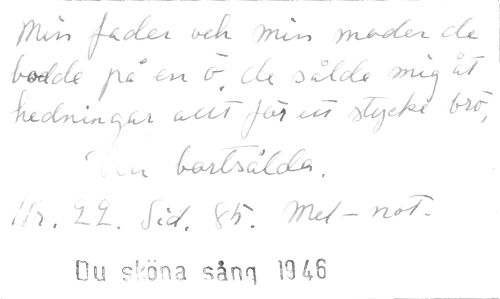 Min fader och min moder de
bodde på en ö, de sålde mig åt
hedningar allt för ett stycke brö,
Den bortsålda.
Nr. 22. Sid. 85. Mel-not.
Du sköna sång 1946